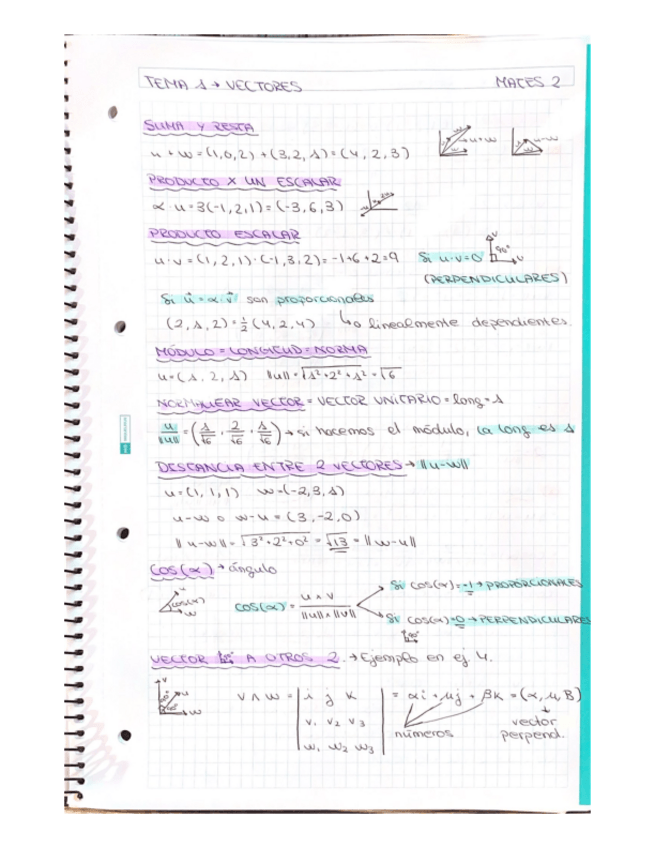 TEMA 1 → VECTORES MATES 2
SUMA Y RESTA
u + w = (1,0,2) + (3,2,1) = (4,2,3) u+w u-w
PRODUCTO X UN ESCALAR
α · u = 3(-1,2,1) = (-3,6,3)
PRODUCTO ESCALAR
u · v = (1,2,1) · (-1,3,2) = -1+6+2=9 Si u·v=0 90°
(PERPENDICULARES)
Si u = α · v son proporcionales
(2,1,2) = 1/2 (4,2,4) ↳ o linealmente dependientes.
MÓDULO = LONGITUD = NORMA
u = (1,2,1) ||u|| = √1²+2²+1² = √6
NORMALIZAR VECTOR = VECTOR UNITARIO = long = 1
u/||u|| = (1/√6, 2/√6, 1/√6) → si hacemos el módulo, la long es 1
DISTANCIA ENTRE 2 VECTORES → ||u-w||
u = (1,1,1) w = (-2,3,1)
u-w o w-u = (3,-2,0)
||u-w|| = √3²+2²+0² = √13 = ||w-u||
COS(α) → ángulo
Si cos(α) = -1 → PROPORCIONALES
u cos(α) w cos(α) = u ∧ v / ||u|| ∧ ||v||
Si cos(α) = 0 → PERPENDICULARES
90°
VECTOR 90° A OTROS 2. → Ejemplo en ej. 4.
v ∧ w = | i j k | = αi + μj + βk = (α, μ, β)
v₁ v₂ v₃ números vector
w₁ w₂ w₃ perpend.